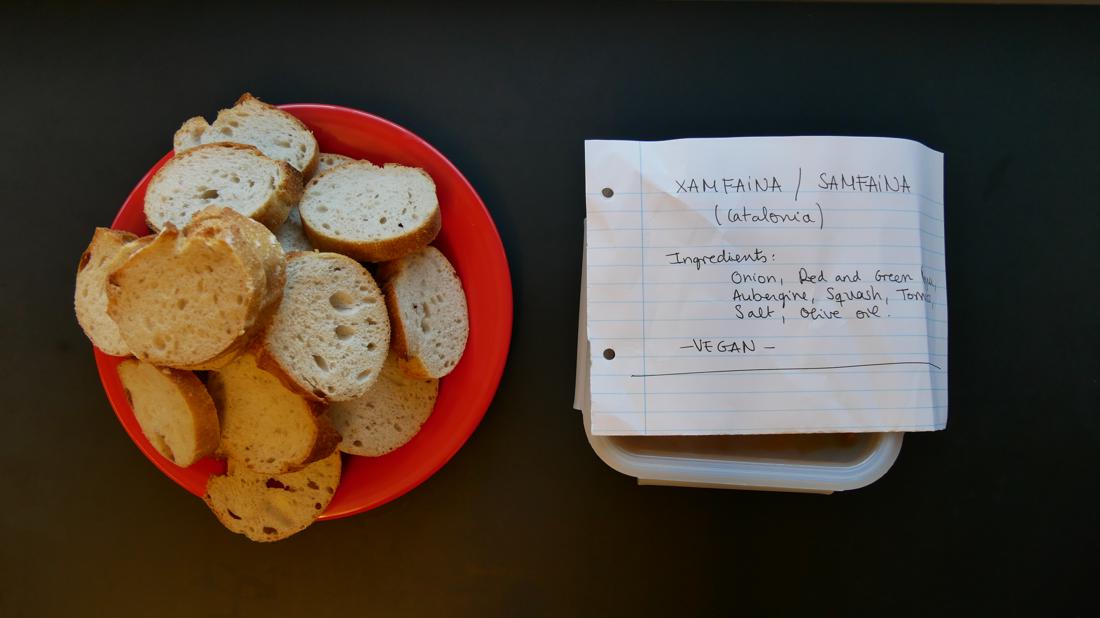 XAMFAINA / SAMFAINA
(Catalonia)
Ingredients:
Onion, Red and Green
Aubergine, Squash,
Salt, Olive oil.
-VEGAN-